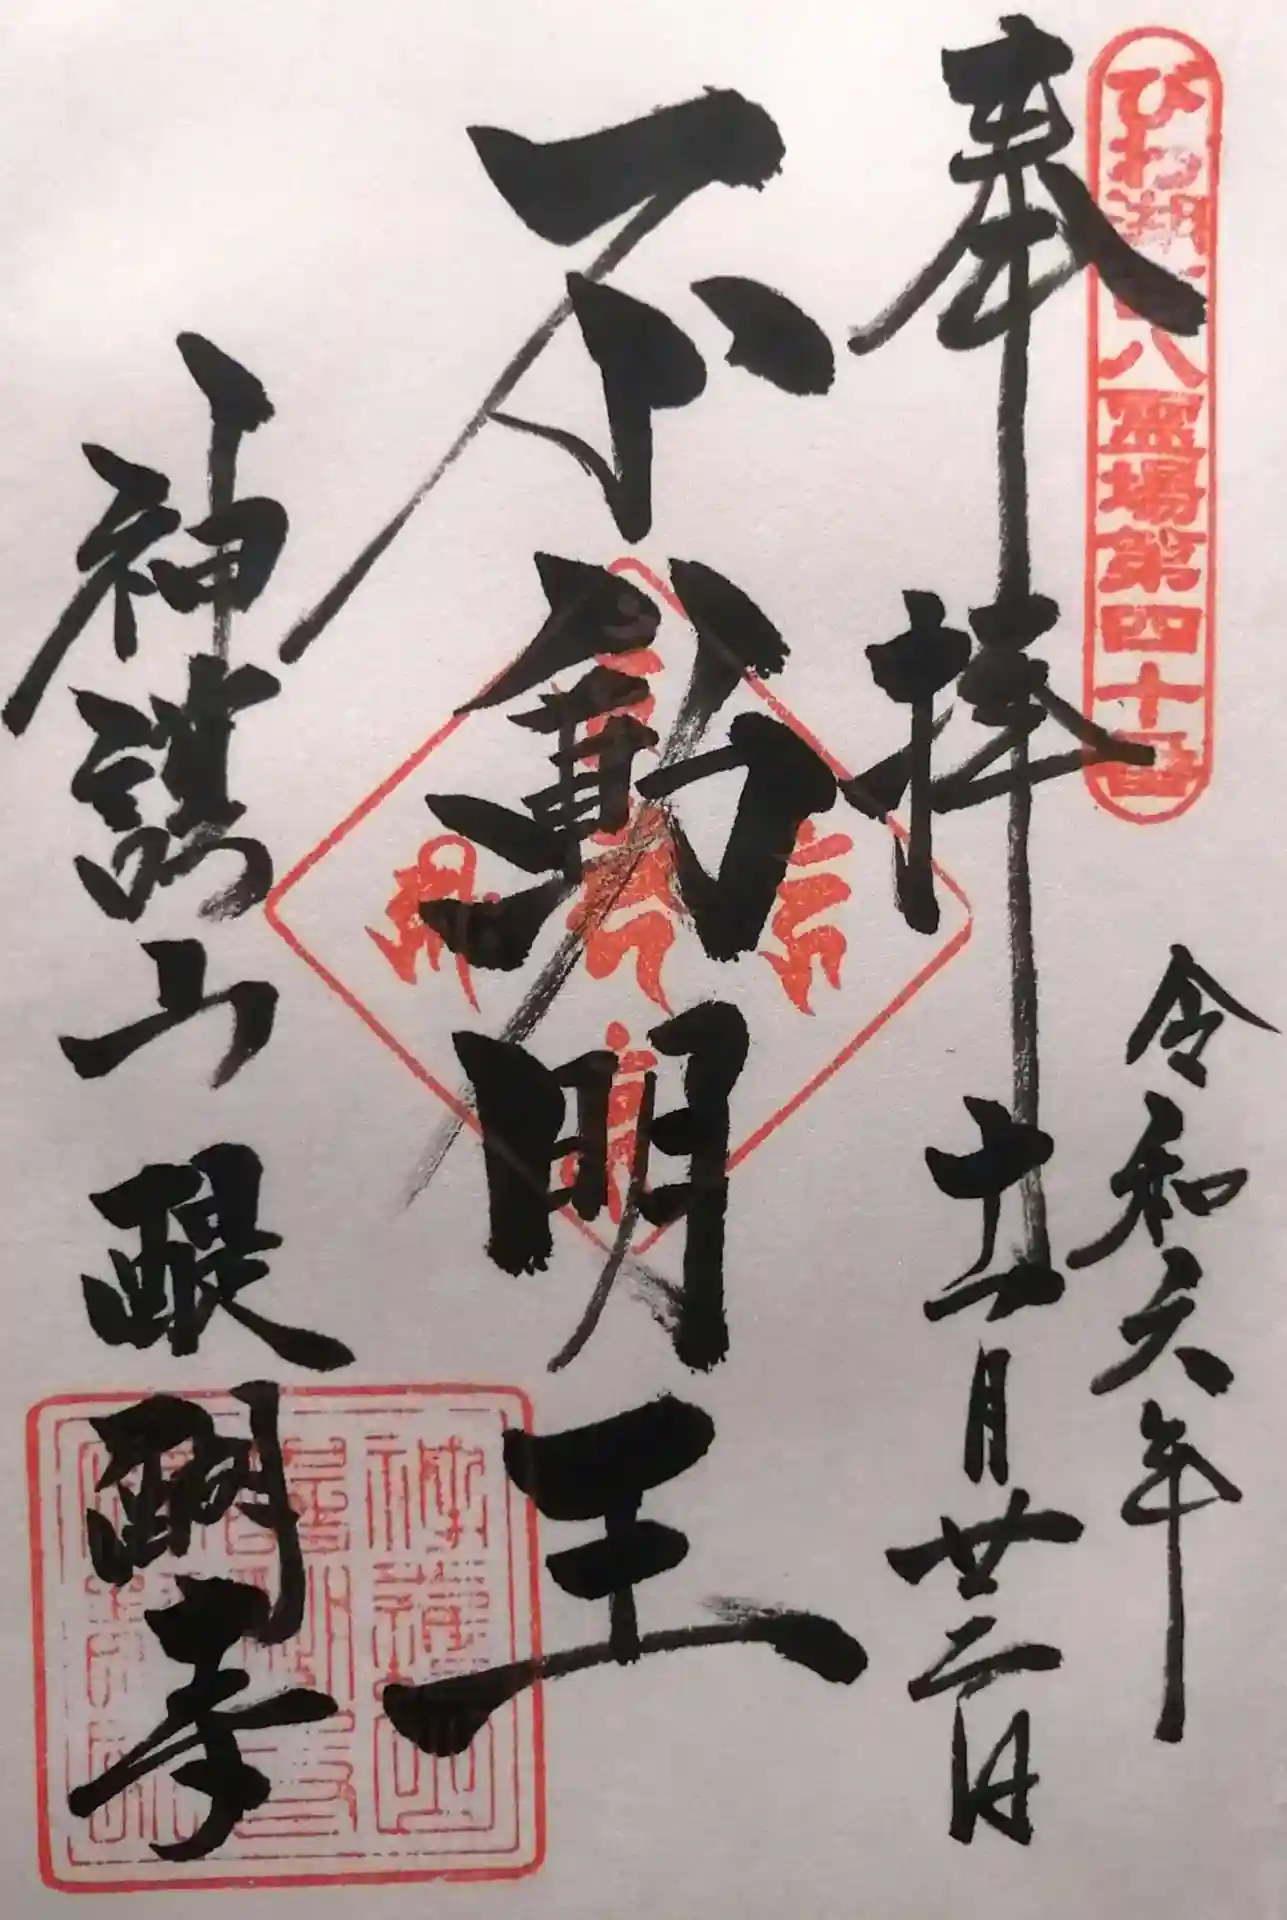 びわ湖百八霊場第四十番
奉拝
令和六年
十一月廿二日
不動明王
神護山醍醐寺